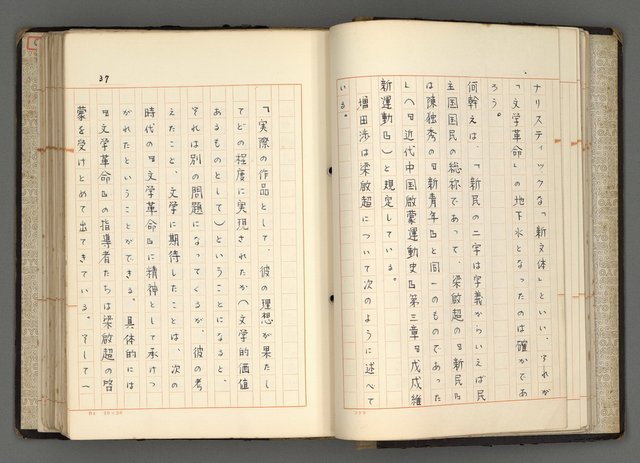 ナリスティックな「新文体」といい、それが
「文学革命」の地下水となったのは確かであ
ろう。
何幹えは、「新民の二字は字義からいえば民
主国国民の総称であって、梁啟超の『新民』
は陳独秀の『新青年』と同一のものであった
」(『近代中国啟蒙運動史』第三章『戊戌維
新運動』)と規定している。
増田渉は梁啟超について次のように述べて
いる。
37
「実際の作品として、彼の理想が果たし
てどの程度に実現されたか(文学的価値
あるものとして)ということになると、
それは別の問題になってくるが、彼の考
えたこと、文学に期待したことは、次の
時代の『文学革命』に精神として承けつ
がれたということができる。具体的には
『文学革命』の指導者たちは梁啟超の啓
蒙を受けとめて出てきている。そして一